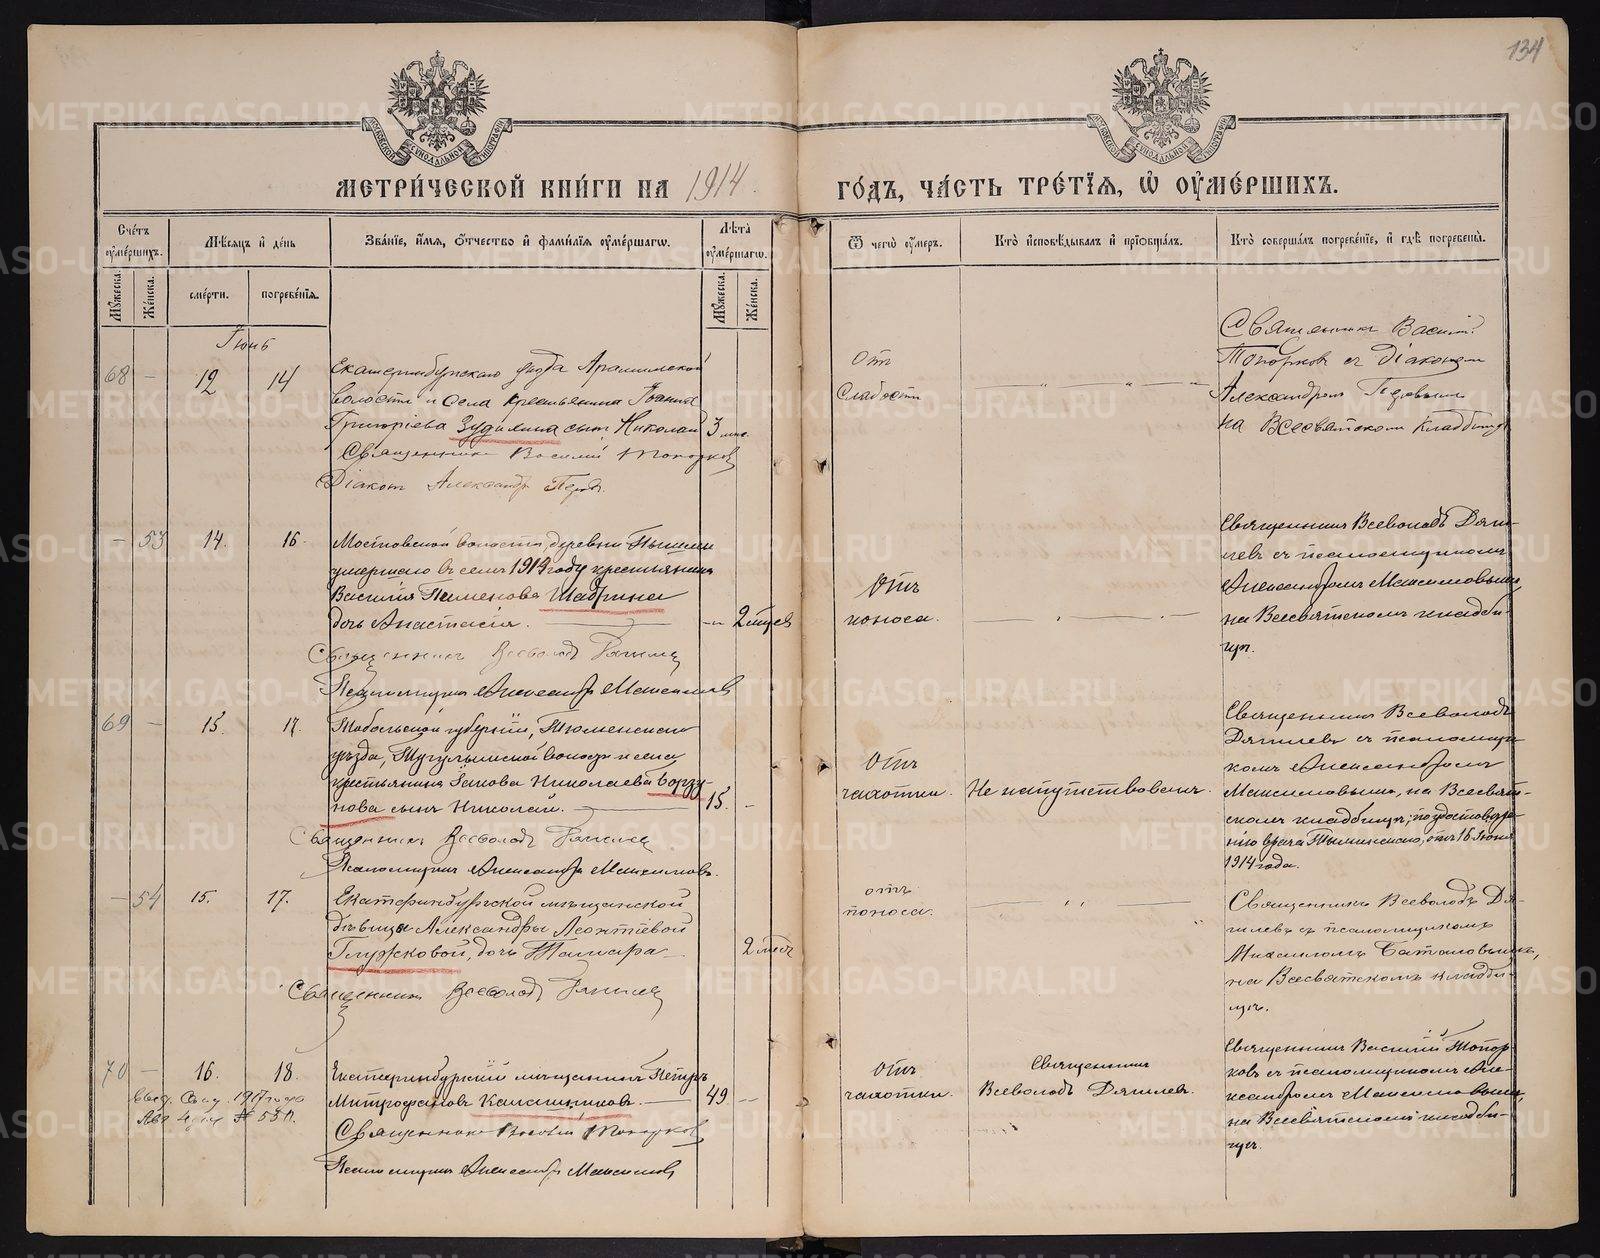 134
МЕТРИ́ЧЕСКОЙ КНИ́ГИ НА 1914
ГО́ДЪ, ЧА́СТЬ ТРЕ́ТІѦ, Ѡ҆ ОУ҆МЕ́РШИХЪ.
Сче́тъ оу҆ме́ршихъ.
Мѣ́сяцъ и҆ де́нь
Зва́нїе, и҆́мѧ, ѻ҆́тчество и҆ фами́лїѧ оу҆ме́ршагѡ.
Лѣ́та оу҆ме́ршагѡ.
Ѿ чегѡ̀ оу҆́меръ.
Кто̀ и҆сповѣ́дывалъ и҆ прїѡбща́лъ.
Кто̀ соверша́лъ погребе́нїе, и҆ гдѣ̀ погребены̀.
Мꙋ́жеска.
Же́нска.
сме́рти.
погребе́нїѧ.
Мꙋ́жеска.
Же́нска.
Іюнь
68 — 12 14
Екатеринбургскаго уѣзда Арамильской
волости и села крестьянина Іоанна
Григоріева Зудилина сынъ Николай 3 мѣс.
Священникъ Василій Топорковъ
Діаконъ Александръ
Отъ
слабости
Священникъ Васил.
Топорковъ съ діакономъ
Александромъ
на Всесвятскомъ кладбищѣ
— 53 14. 16.
Мостовской волости, деревни Пышмы
умершаго въ семъ 1914 году крестьянина
Василія Пименова Шабрина
дочь Анастасія. 2 мѣсяц.
Священникъ Всеволодъ Дягилев
Псаломщикъ Александръ Максимовъ
Отъ
поноса.
Священникъ Всеволодъ Дяги-
левъ съ псаломщикомъ
Александромъ Максимовымъ,
на Всесвятскомъ кладби-
щѣ.
69 — 15. 17.
Тобольской губерніи, Тюменскаго
уѣзда, Тугулымской волости и села
крестьянина Іакова Николаева Боргу-
нова сынъ Николай. 15. —
Священникъ Всеволодъ Дягилев
Псаломщикъ Александръ Максимовъ.
Отъ
чахотки.
Не напутствованъ.
Священникъ Всеволодъ
Дягилевъ съ псаломщи-
комъ Александромъ
Максимовымъ, на Всесвят-
скомъ кладбищѣ; по удостовѣре-
нію врача отъ 16 Іюня
1914 года.
— 54 15. 17.
Екатеринбургской мѣщанской
дѣвицы Александры Леонтіевой
Глужковой, дочь Тамара 2 мѣс.
Священникъ Всеволодъ Дягилев
отъ
поноса.
Священникъ Всеволодъ Дя-
гилевъ съ псаломщикомъ
Михаиломъ
на Всесвятскомъ кладби-
щѣ.
70 — 16. 18.
Выд. Свид. 1917 года
Авг 4 дня № 55
Екатеринбургскій мѣщанинъ Петръ
Митрофановъ Калашниковъ. 49 —
Священникъ Василій Топорковъ
Псаломщикъ Александръ Максимовъ
Отъ
чахотки.
Священникъ
Всеволодъ Дягилевъ.
Священникъ Василій Топор-
ковъ съ псаломщикомъ Але-
ксандромъ Максимовымъ,
на Всесвятскомъ кладби-
щѣ.
METRIKI.GASO-URAL.RU